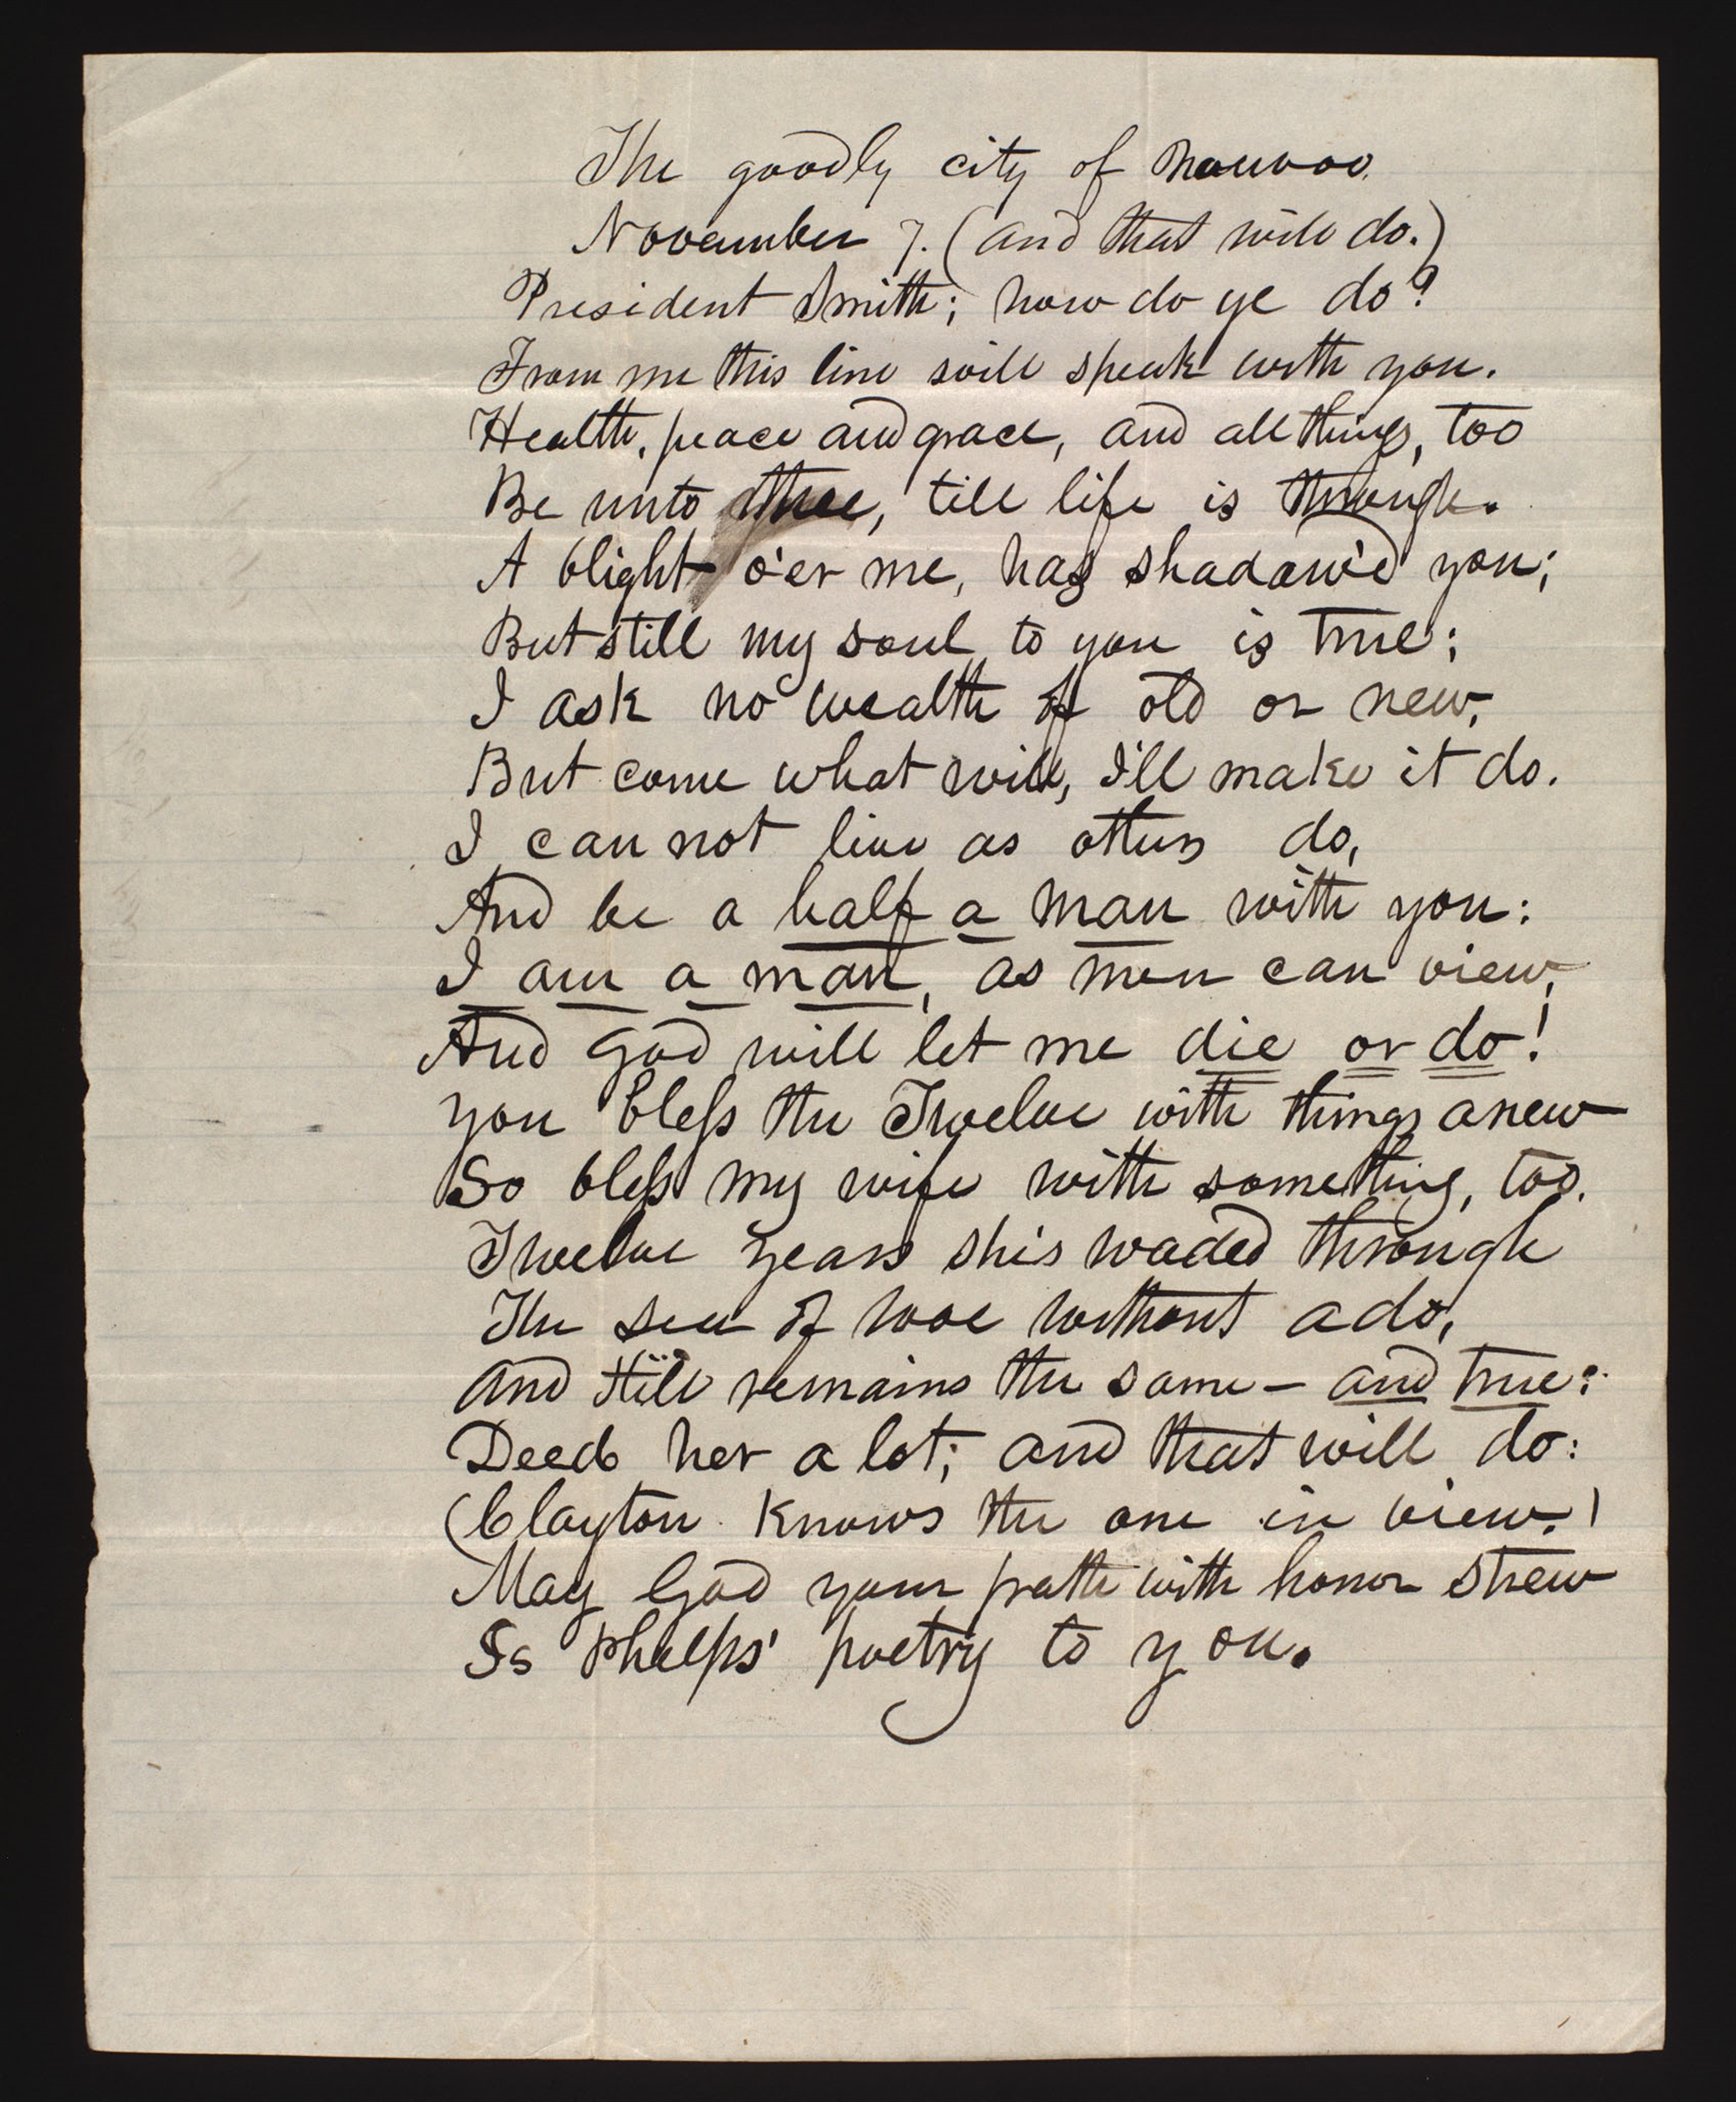 The goodly city of Nauvoo.
November 7. (and that will do.)
President Smith; how do ye do?
From me this line will speak with you.
Health, peace and grace, and all things, too
Be unto thee, till life is through.
A blight o'er me, has shadow'd you;
But still my soul to you is true;
I ask no wealth of old or new,
But come what will, I'll make it do.
I can not live as others do,
And be a half a man with you:
I am a man, as men can view,
And God will let me die or do!
You bless the Twelve with things anew
So bless my wife with something, too.
Twelve years shis waded through
The sea of woe without ado,
And still remains the same – and true:
Deed her a lot; and that will do:
(Clayton knows the one in view.)
May God your path with honor strew
Is Phelps' poetry to you.